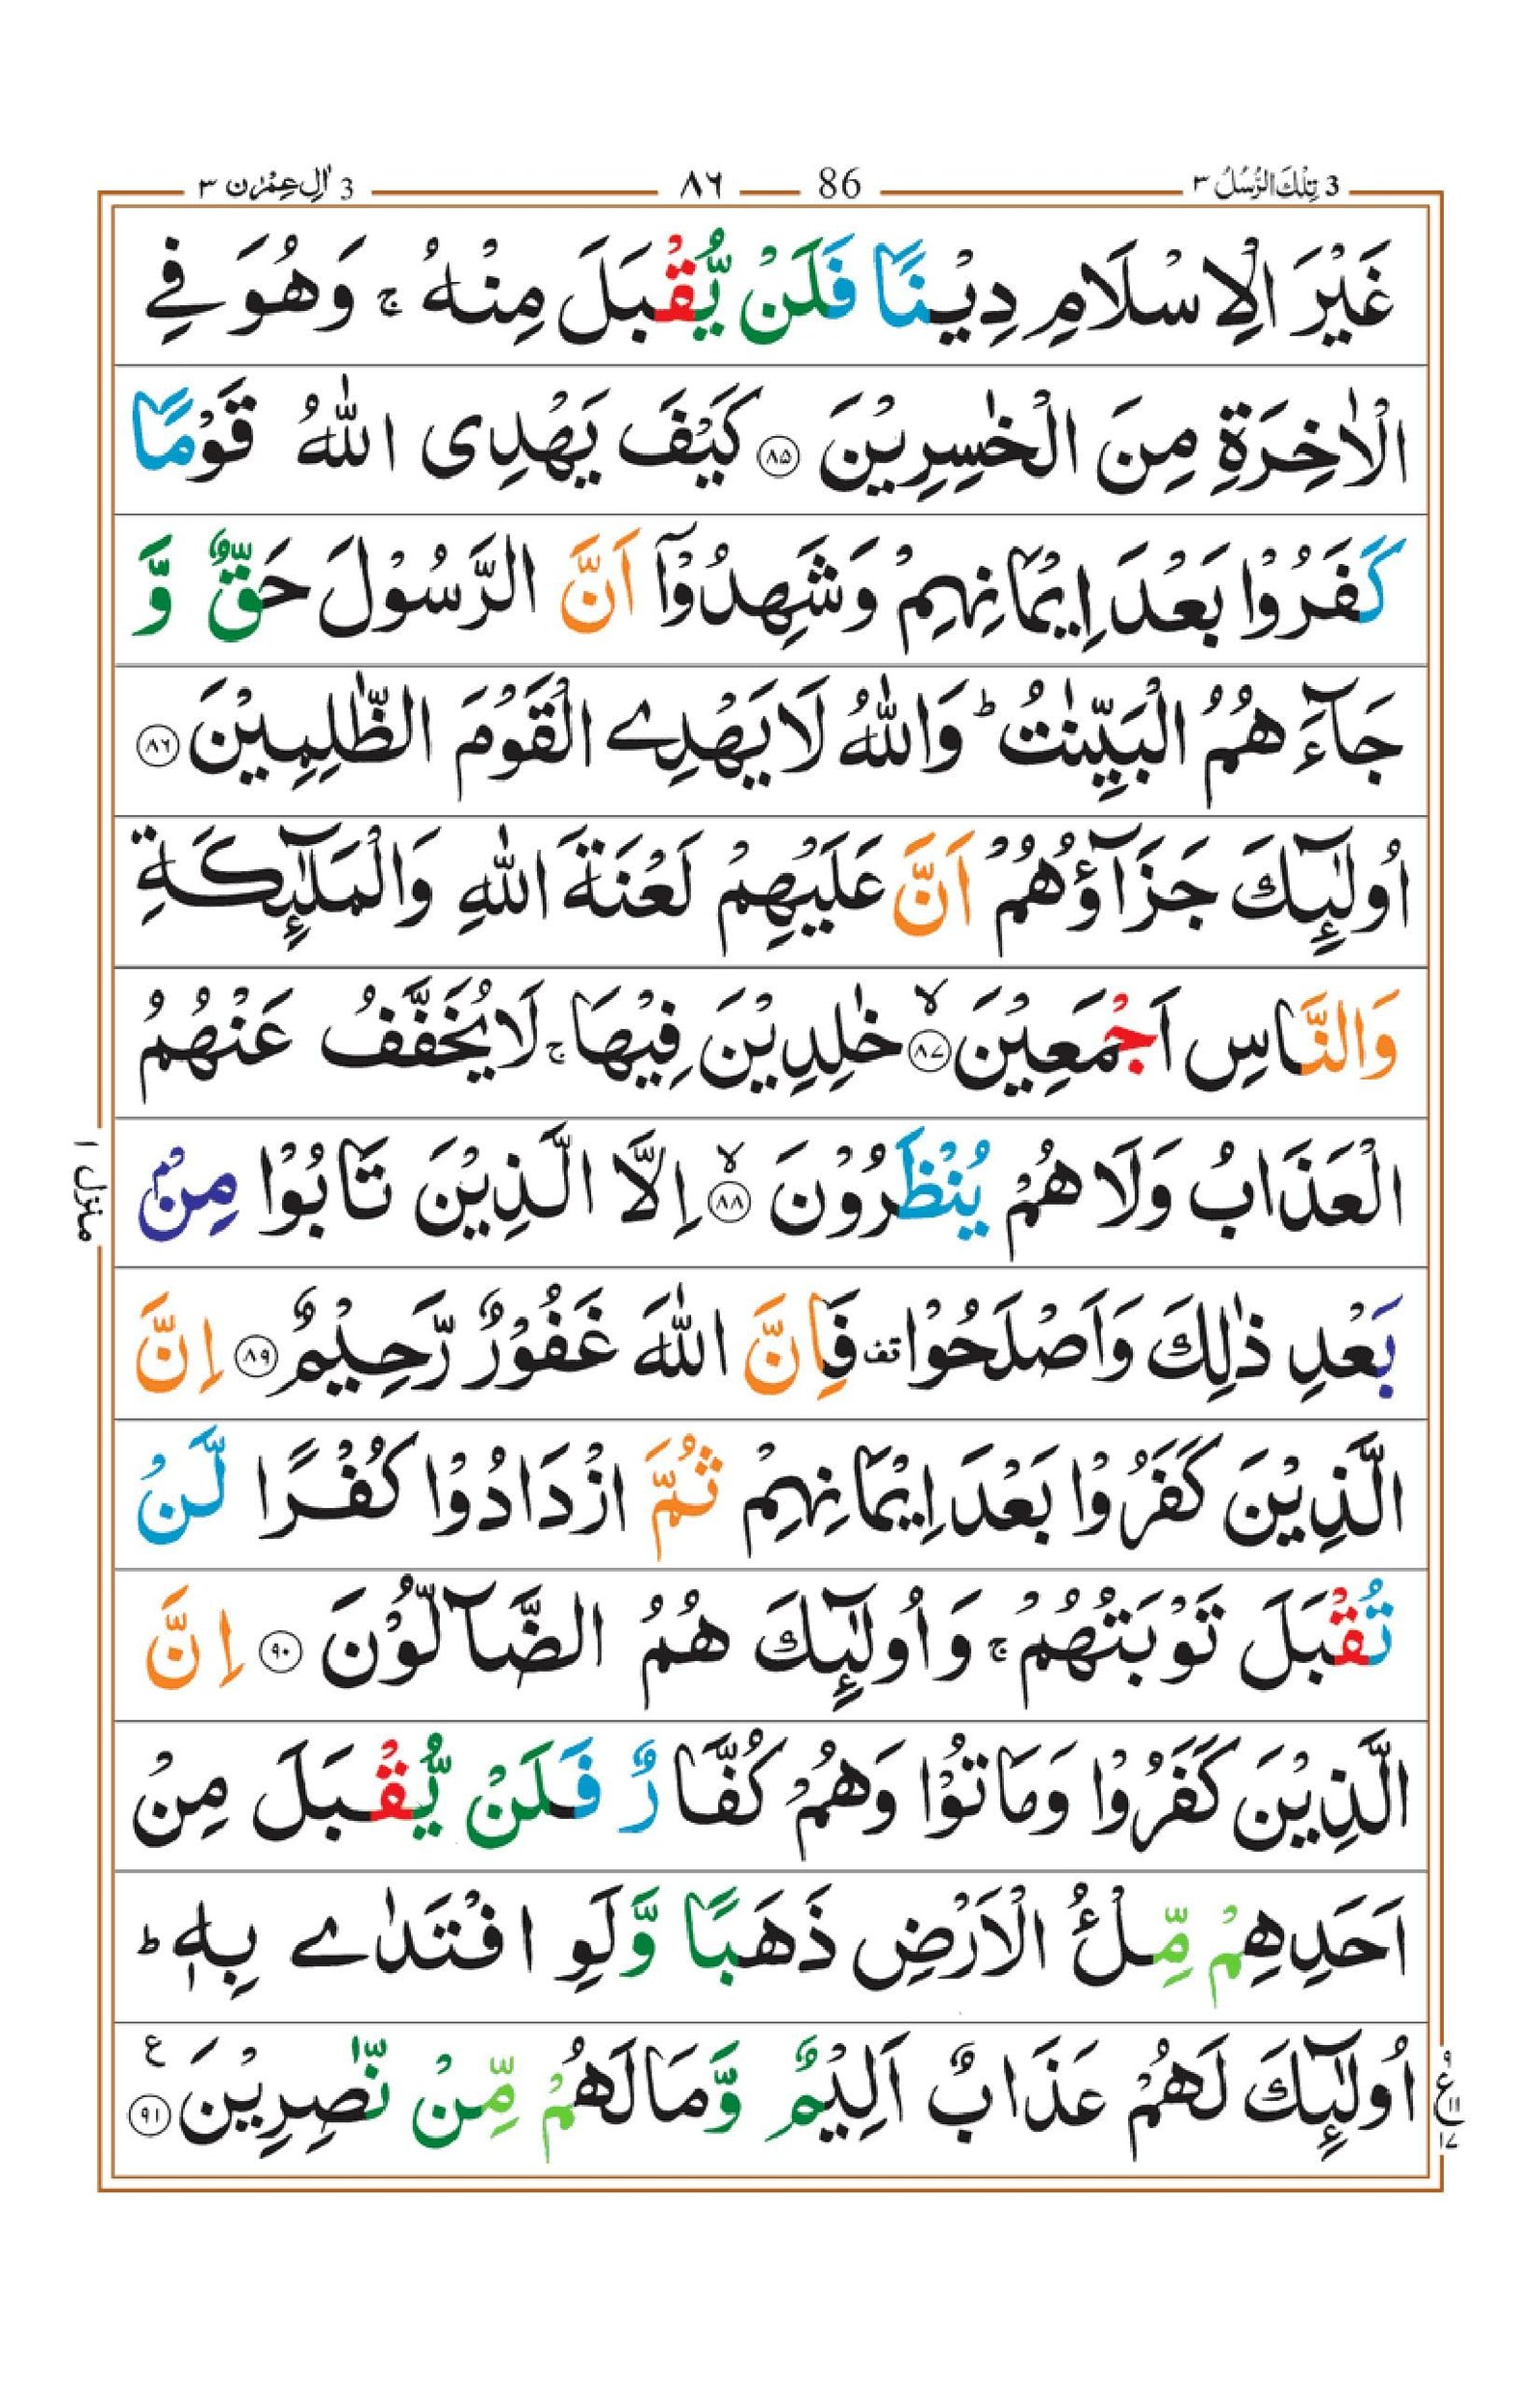 3 تِلْكَ الرُّسُلُ ٣
86 ٨٦
3 اٰلِ عِمْرٰن ٣
غَيْرَ الْاِسْلَامِ دِيْنًا فَلَنْ يُّقْبَلَ مِنْهُ ۚ وَهُوَ فِي
الْاٰخِرَةِ مِنَ الْخٰسِرِيْنَ ﴿٨٥﴾ كَيْفَ يَهْدِى اللّٰهُ قَوْمًا
كَفَرُوْا بَعْدَ اِيْمَانِهِمْ وَشَهِدُوْۤا اَنَّ الرَّسُوْلَ حَقٌّ وَّ
جَآءَهُمُ الْبَيِّنٰتُ ؕ وَاللّٰهُ لَا يَهْدِے الْقَوْمَ الظّٰلِمِيْنَ ﴿٨٦﴾
اُولٰٓئِكَ جَزَآؤُهُمْ اَنَّ عَلَيْهِمْ لَعْنَةَ اللّٰهِ وَالْمَلٰٓئِكَةِ
وَالنَّاسِ اَجْمَعِيْنَ ۙ﴿٨٧﴾ خٰلِدِيْنَ فِيْهَا ۚ لَا يُخَفَّفُ عَنْهُمُ
الْعَذَابُ وَلَا هُمْ يُنْظَرُوْنَ ۙ﴿٨٨﴾ اِلَّا الَّذِيْنَ تَابُوْا مِنْۢ
بَعْدِ ذٰلِكَ وَاَصْلَحُوْا قف فَاِنَّ اللّٰهَ غَفُوْرٌ رَّحِيْمٌ ﴿٨٩﴾ اِنَّ
الَّذِيْنَ كَفَرُوْا بَعْدَ اِيْمَانِهِمْ ثُمَّ ازْدَادُوْا كُفْرًا لَّنْ
تُقْبَلَ تَوْبَتُهُمْ ۚ وَاُولٰٓئِكَ هُمُ الضَّآلُّوْنَ ﴿٩٠﴾ اِنَّ
الَّذِيْنَ كَفَرُوْا وَمَاتُوْا وَهُمْ كُفَّارٌ فَلَنْ يُّقْبَلَ مِنْ
اَحَدِهِمْ مِّلْءُ الْاَرْضِ ذَهَبًا وَّلَوِ افْتَدٰے بِهٖ ؕ
اُولٰٓئِكَ لَهُمْ عَذَابٌ اَلِيْمٌ وَّمَا لَهُمْ مِّنْ نّٰصِرِيْنَ ﴿٩١﴾ ع
منزل ١
٩ ع ١١ ١٧